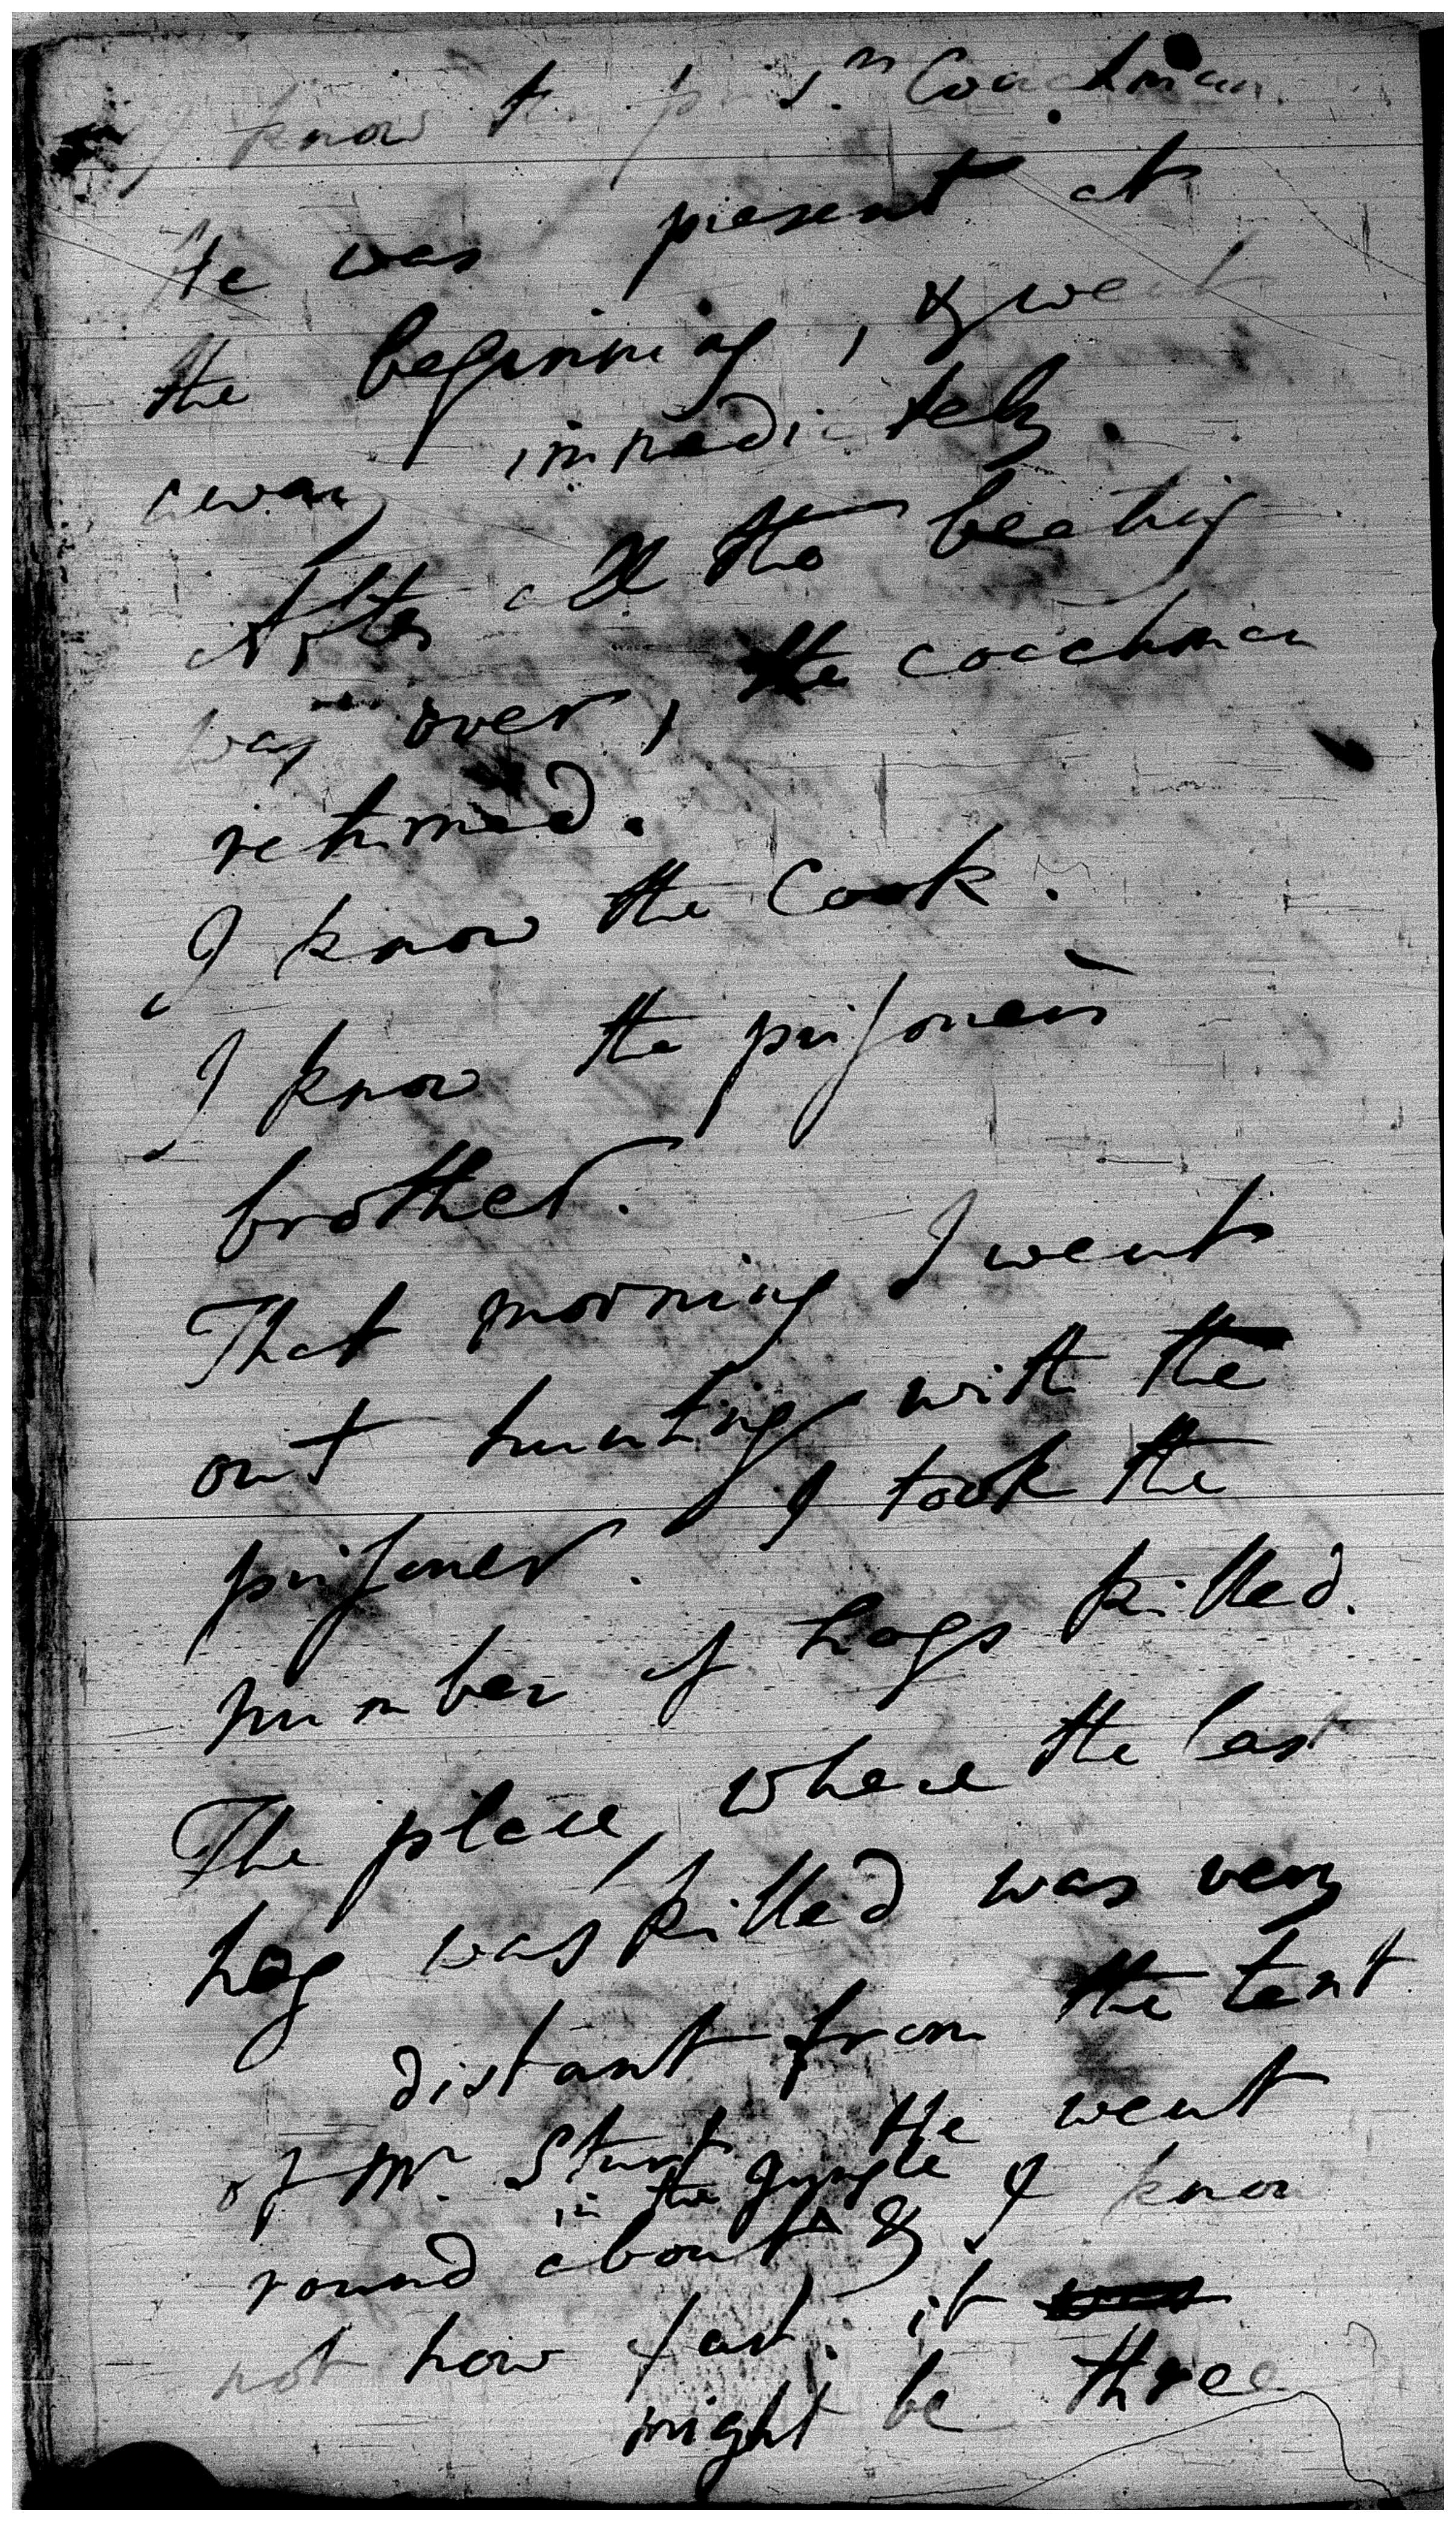 I know the pris.rs Coachman.
He was present at
the beginning, & went
away immediately.
After all the beating
was over, the coachman
returned.
I know the Cook.
I know the prisoners
brother.
That morning I went
out hunting with the
prisoner. I took the
number of hogs killed.
The place, where the last
hog was killed was very
distant from the tent
of Mr. Sturt He went
in the jungle
round about ^ & I know
not how far. it was
might be three